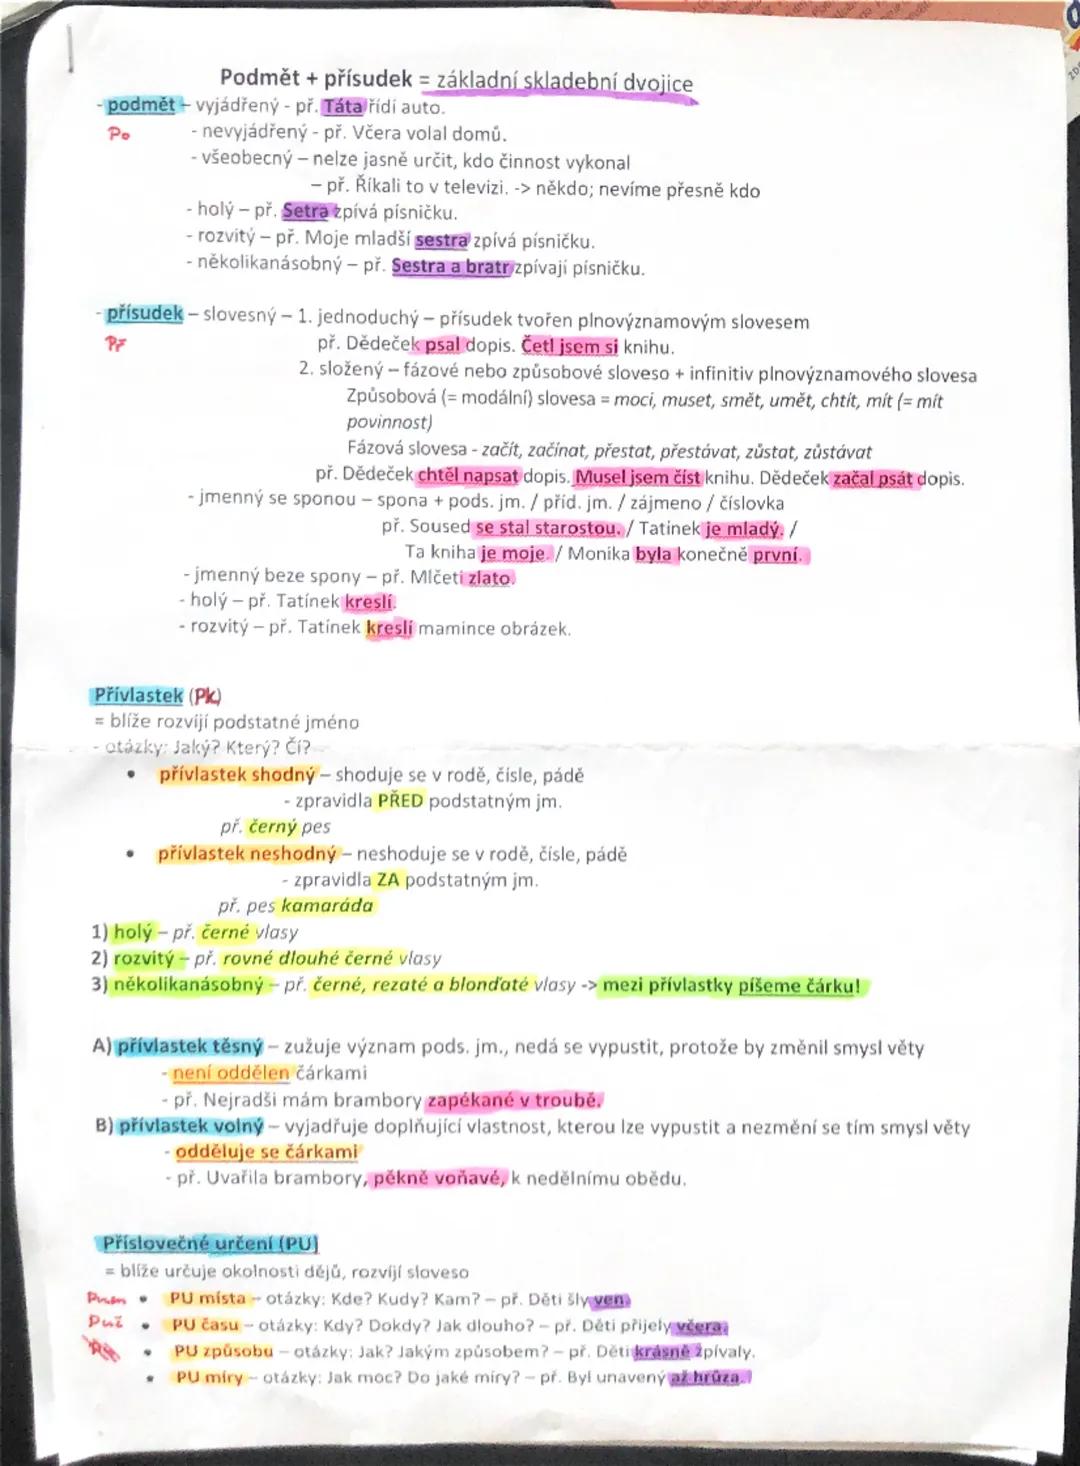 Podmět + přísudek = základní skladební dvojice
- podmět – vyjádřený - př. Táta řídí auto.
Po - nevyjádřený - př. Včera volal domů.
- všeobecný – nelze jasně určit, kdo činnost vykonal
– př. Říkali to v televizi. -> někdo; nevíme přesně kdo
- holý – př. Setra zpívá písničku.
- rozvitý – př. Moje mladší sestra zpívá písničku.
- několikanásobný – př. Sestra a bratr zpívají písničku.
- přísudek – slovesný – 1. jednoduchý – přísudek tvořen plnovýznamovým slovesem
Př př. Dědeček psal dopis. Četl jsem si knihu.
2. složený – fázové nebo způsobové sloveso + infinitiv plnovýznamového slovesa
Způsobová (= modální) slovesa = moci, muset, smět, umět, chtít, mít (= mít
povinnost)
Fázová slovesa - začít, začínat, přestat, přestávat, zůstat, zůstávat
př. Dědeček chtěl napsat dopis. Musel jsem číst knihu. Dědeček začal psát dopis.
- jmenný se sponou – spona + pods. jm. / příd. jm. / zájmeno / číslovka
př. Soused se stal starostou. / Tatínek je mladý. /
Ta kniha je moje. / Monika byla konečně první.
- jmenný beze spony – př. Mlčeti zlato.
- holý – př. Tatínek kreslí.
- rozvitý – př. Tatínek kreslí mamince obrázek.
Přívlastek (Pk)
= blíže rozvíjí podstatné jméno
- otázky: Jaký? Který? Čí?
• přívlastek shodný – shoduje se v rodě, čísle, pádě
- zpravidla PŘED podstatným jm.
př. černý pes
• přívlastek neshodný – neshoduje se v rodě, čísle, pádě
- zpravidla ZA podstatným jm.
př. pes kamaráda
1) holý – př. černé vlasy
2) rozvitý – př. rovné dlouhé černé vlasy
3) několikanásobný – př. černé, rezaté a blonďaté vlasy -> mezi přívlastky píšeme čárku!
A) přívlastek těsný – zužuje význam pods. jm., nedá se vypustit, protože by změnil smysl věty
- není oddělen čárkami
- př. Nejradši mám brambory zapékané v troubě.
B) přívlastek volný – vyjadřuje doplňující vlastnost, kterou lze vypustit a nezmění se tím smysl věty
- odděluje se čárkami
- př. Uvařila brambory, pěkně voňavé, k nedělnímu obědu.
Příslovečné určení (PU)
= blíže určuje okolnosti dějů, rozvíjí sloveso
• PU místa – otázky: Kde? Kudy? Kam? – př. Děti šly ven.
Puč • PU času – otázky: Kdy? Dokdy? Jak dlouho? – př. Děti přijely včera.
• PU způsobu – otázky: Jak? Jakým způsobem? – př. Děti krásně zpívaly.
• PU míry – otázky: Jak moc? Do jaké míry? – př. Byl unavený až hrůza.